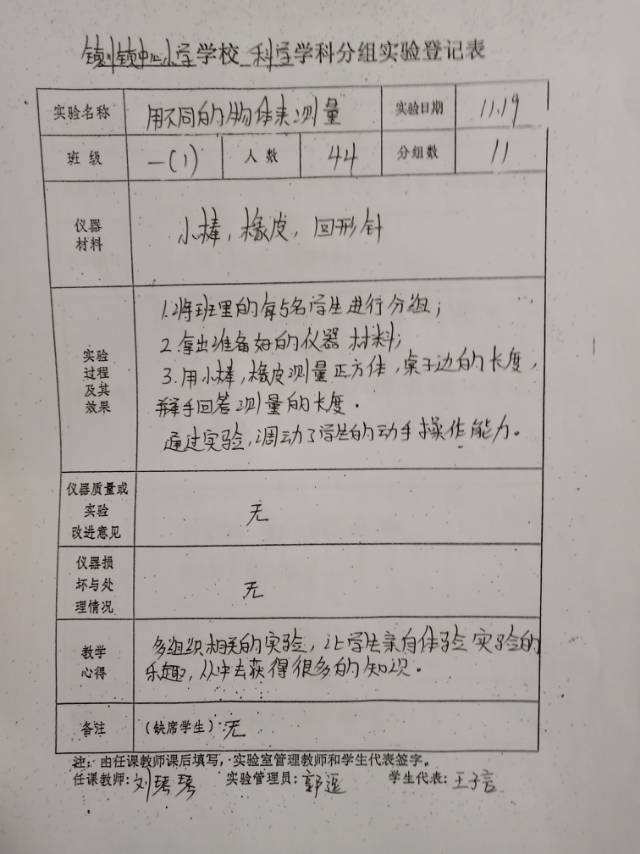 镇川镇中心小学学校 科学学科分组实验登记表
实验名称 用不同的物体来测量 实验日期 11.19
班级 一(1) 人数 44 分组数 11
仪器
材料
小棒，橡皮，回形针
实验
过程
及其
效果
1.将班里的每5名学生进行分组；
2.拿出准备好的仪器材料；
3.用小棒，橡皮测量正方体，桌子边的长度，
举手回答测量的长度。
通过实验，调动了学生的动手操作能力。
仪器质量或
实验
改进意见
无
仪器损
坏与处
理情况
无
教学
心得
多组织相关的实验，让学生亲自体验实验的
乐趣，从中去获得很多的知识。
备注 (缺席学生)：无
注：由任课教师课后填写，实验室管理教师和学生代表签字。
任课教师：刘琴琴 实验管理员：郭遥 学生代表：王子言